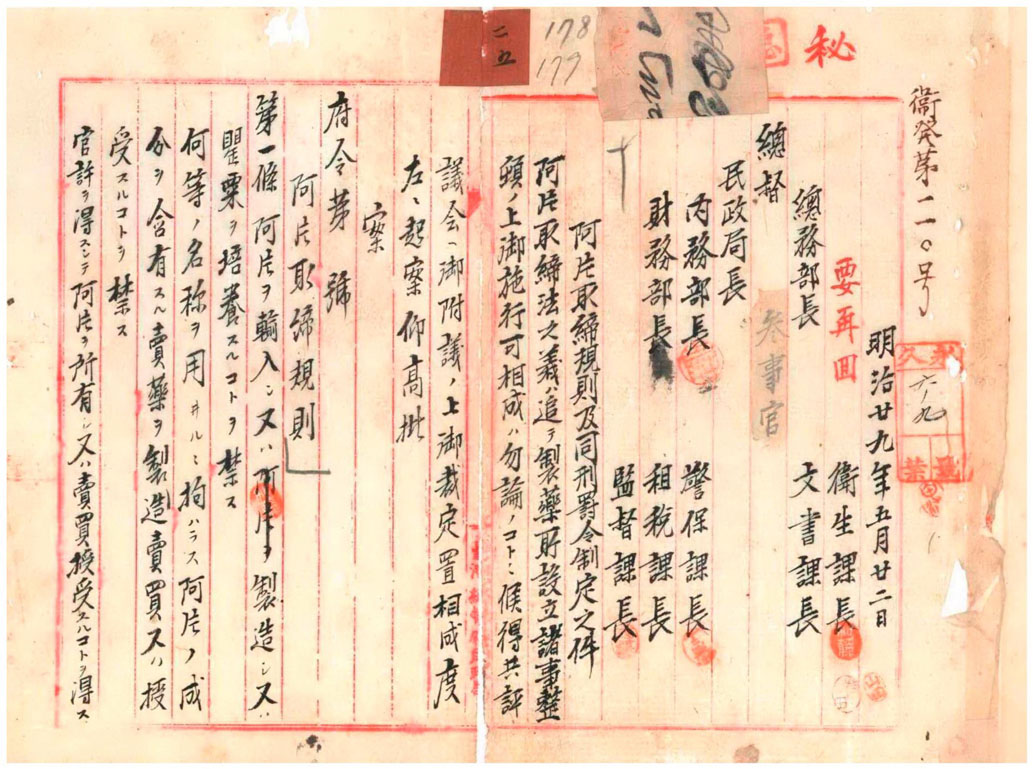 秘
衛発第二一〇号
明治廿九年五月廿二日
永久
六ノ九
要再回
衛生課長
總務部長
文書課長
總督
参事官
民政局長
内務部長
警保課長
財務部長
租税課長
監督課長
阿片取締規則及同刑罰令制定之件
阿片取締法之義ハ追テ製藥所設立諸事整
頓ノ上御施行可相成ハ勿論ノコトニ候得共評
議会ヘ御附議ノ上御裁定置相成度
左ニ起案仰高批
案
府令第 號
阿片取締規則
第一條 阿片ヲ輸入シ又ハ阿片ヲ製造シ又ハ
罌粟ヲ培養スルコトヲ禁ス
何等ノ名称ヲ用ヰルニ拘ハラス阿片ノ成
分ヲ含有スル賣藥ヲ製造賣買又ハ授
受スルコトヲ禁ス
官許ヲ得スシテ阿片ヲ所有シ又ハ賣買授受スルコトヲ得ス
二五
178
179